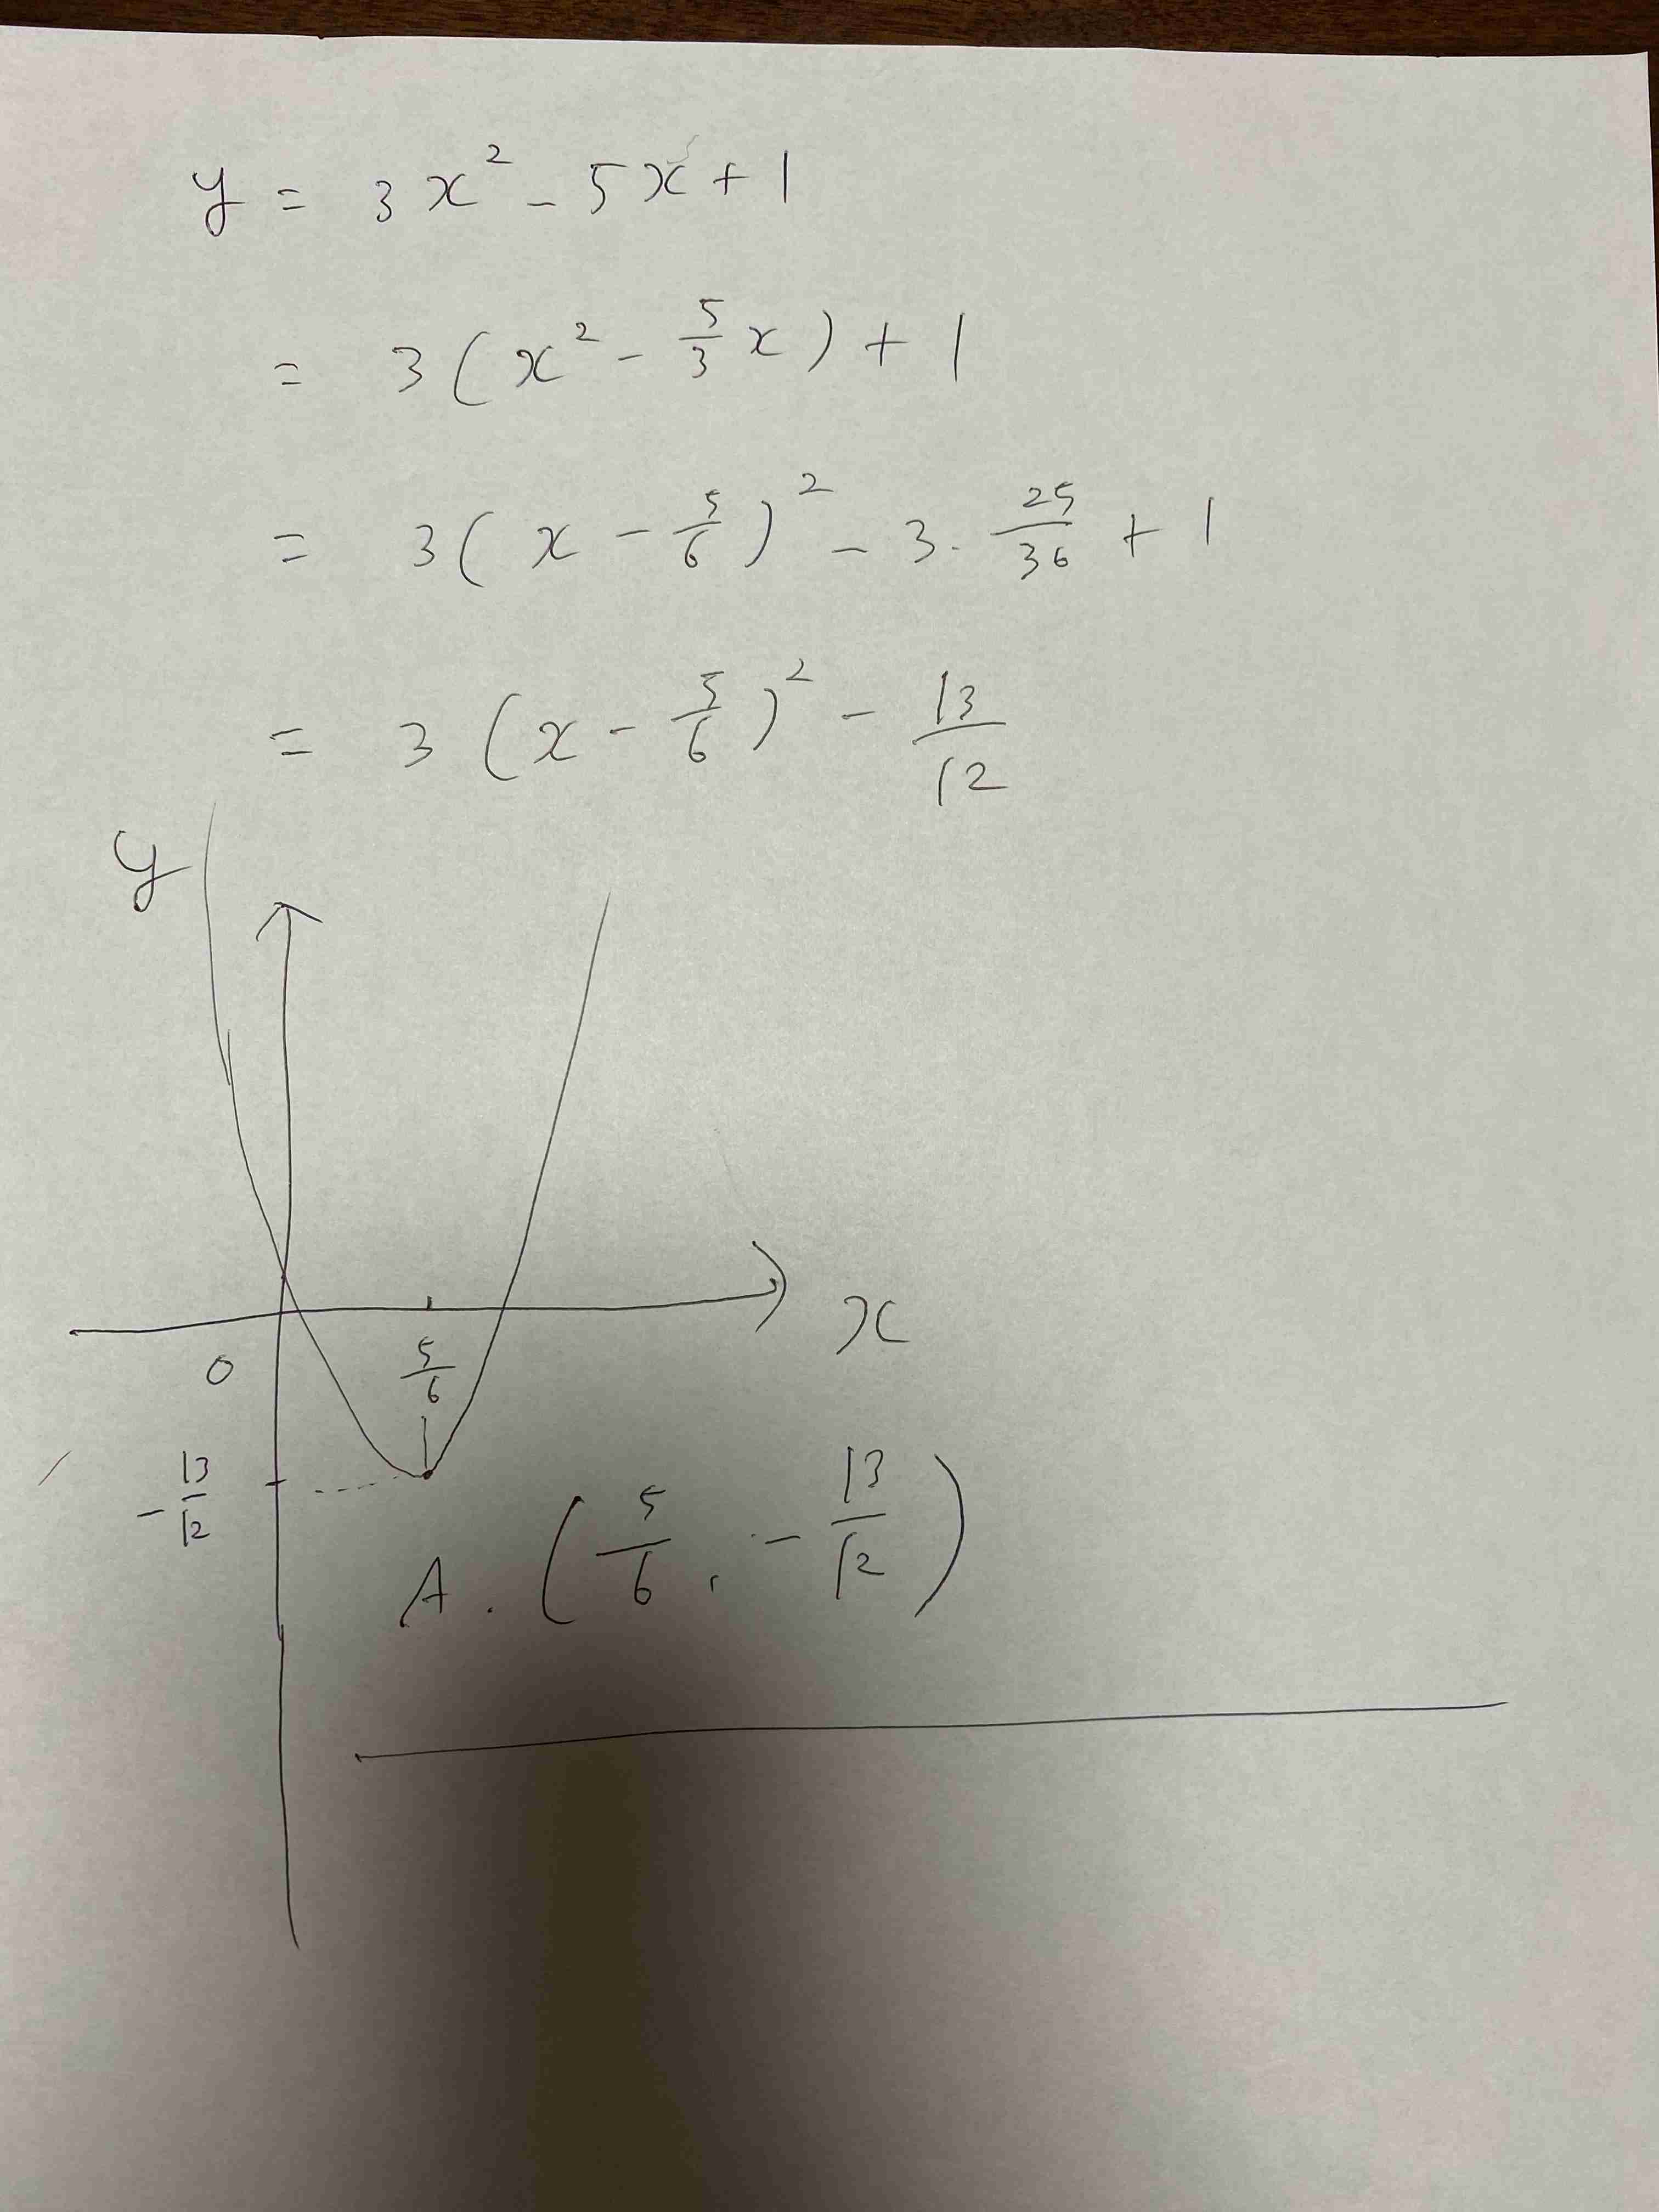 y = 3x² - 5x + 1
= 3(x² - 5/3 x) + 1
= 3(x - 5/6)² - 3 · 25/36 + 1
= 3(x - 5/6)² - 13/12
y
x
0
5/6
-13/12
A. (5/6, -13/12)